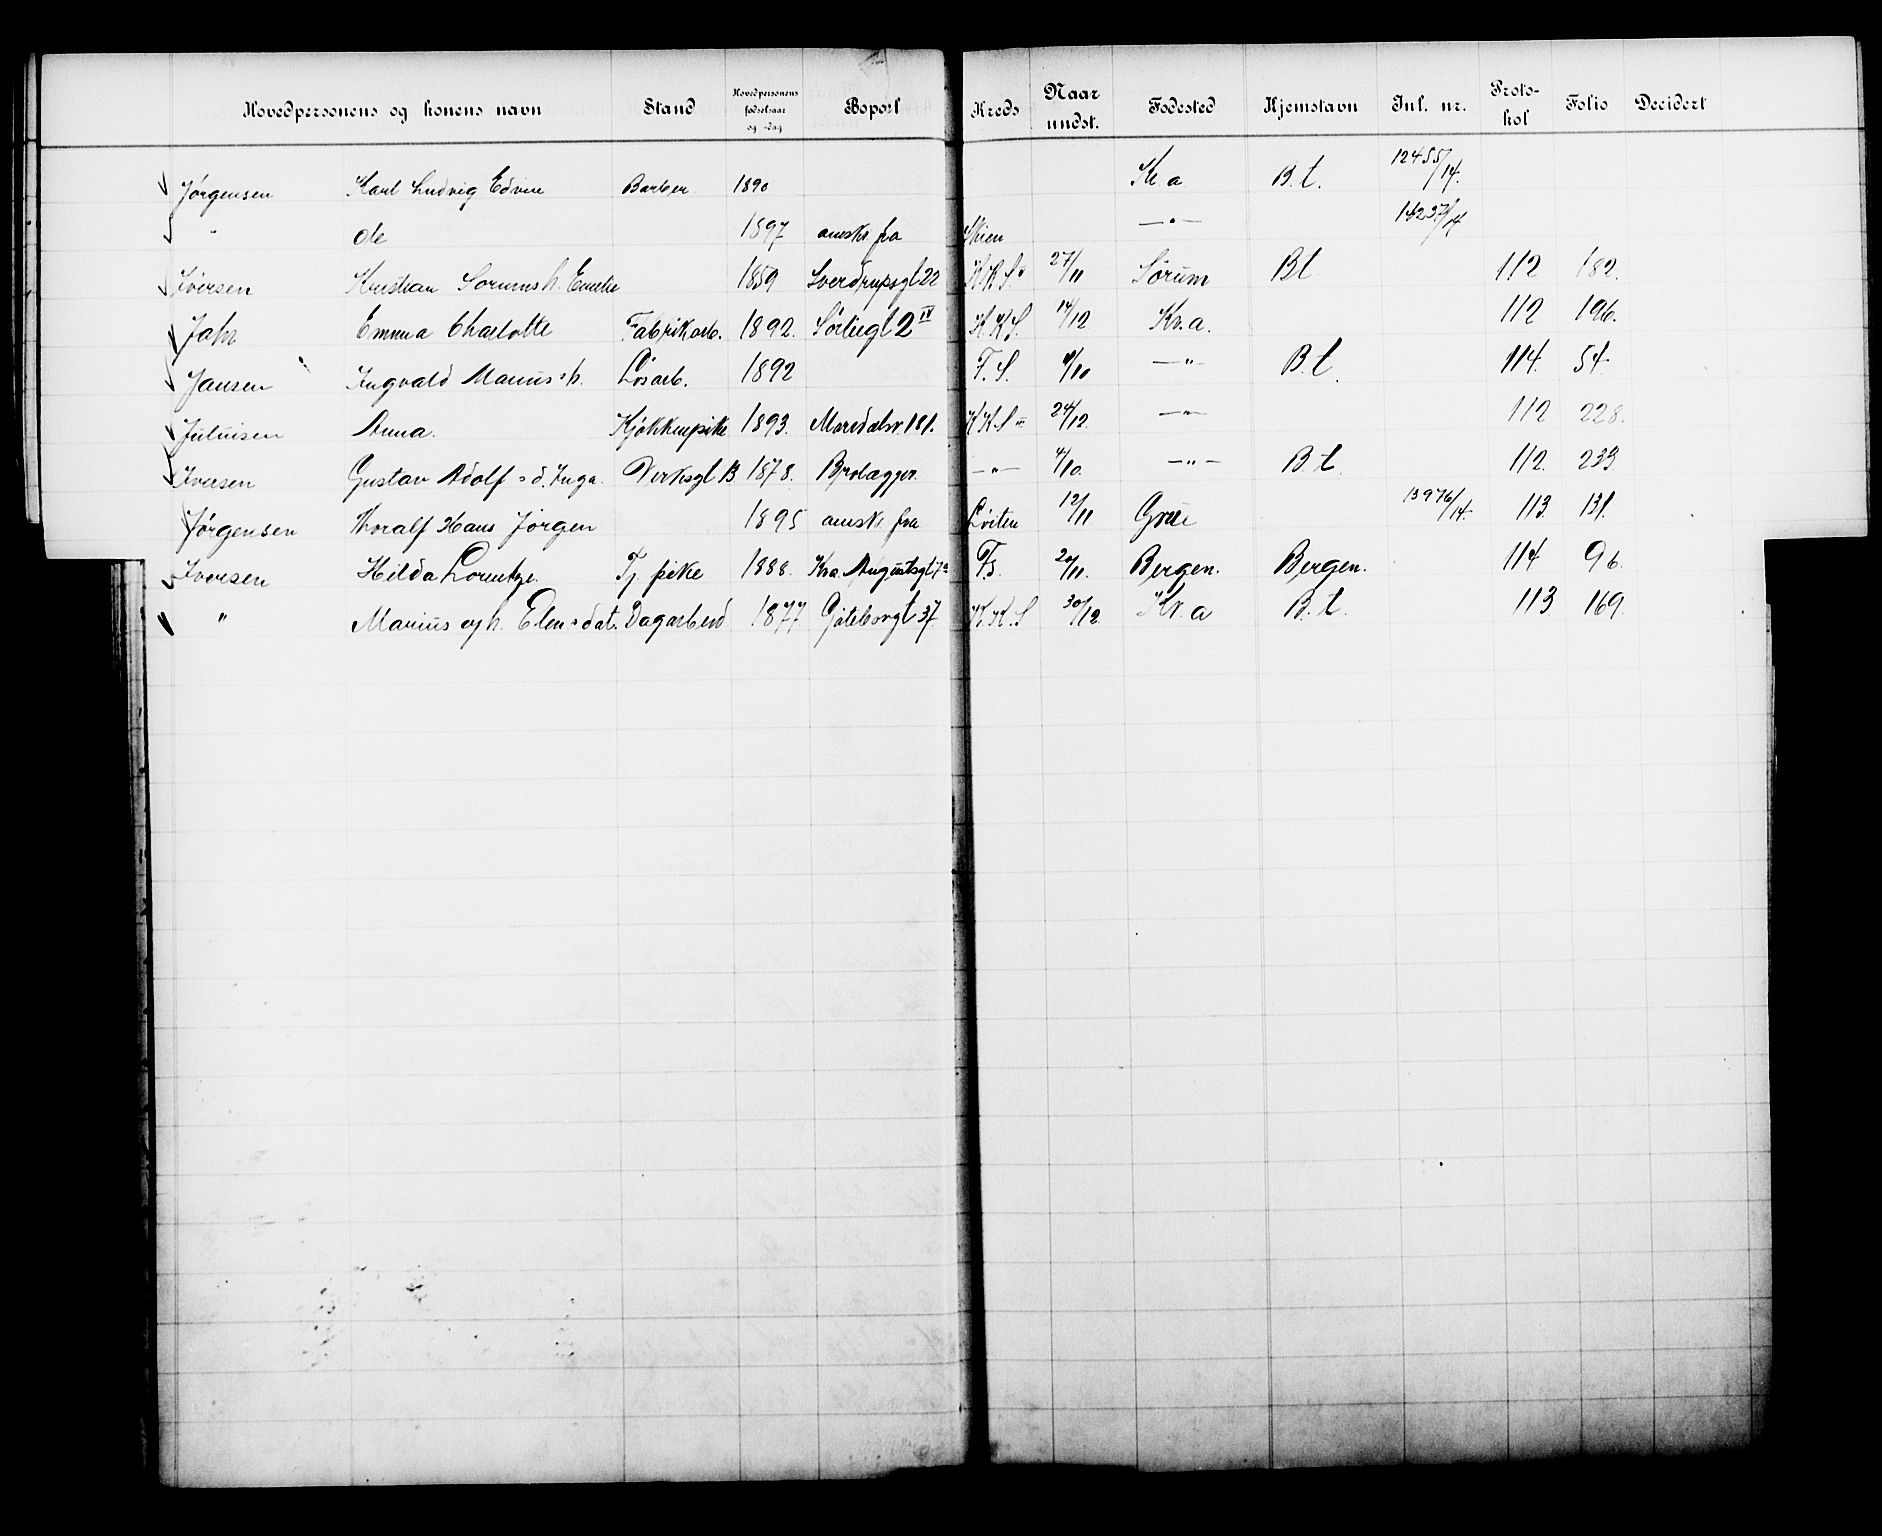 Hovedpersonens og konens navn Stand Hovedpersonens fødselsaar og -dag Bopæl Kreds Naar undst. Fødested Hjemstavn Inl. nr. Proto-kol Folio Decidert
Jørgensen Karl Ludvig Edvin Barber 1890 Kr.a B.t. 12455/14.
" de 1897 anskr fra Skien —"— 14237/14
Iversen Kristian Sorums h. Emelie 1859 Sverdrupsgt 22 27/11 Sørum Bt 112 182.
Jahr Emma Charlotte Fabrikarb. 1892. Sørligt 2 IV K.K.S. 14/12 Kr.a. 112 196.
Jansen Ingvald Marius h. Løsarb. 1892 F.S. /10 —"— B.t. 114. 54.
Juluisen Anna. Kjøkkenpike 1893. Maridalsv. 181. K K S 24/12 —"— 112 228.
Iversen Gustav Adolf d. Inga. Verksgt B 1878. Brolægger. —"— 4/10. —"— B.t. 112. 239
Jørgensen Thoralf Hans Jørgen 1895 anskr fra Løiten 12/11 Grue 13976/14. 113 131.
Iversen Hilda Lorentze. Tj. pike 1888. Kra. Augustsgt 7a Fs. 20/11. Bergen. Bergen. 114 96.
" Marius og h. Elen dat. Dagarbeid 1877 Gøteborgt 37 K.K.S 30/12 Kr.a B.t. 113 169.